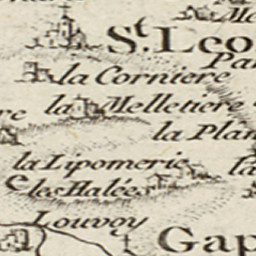 St. Leo
la Corniere
la Melletiere
la Plan
la Lipomerie
les Halées
Louvoy
Gap